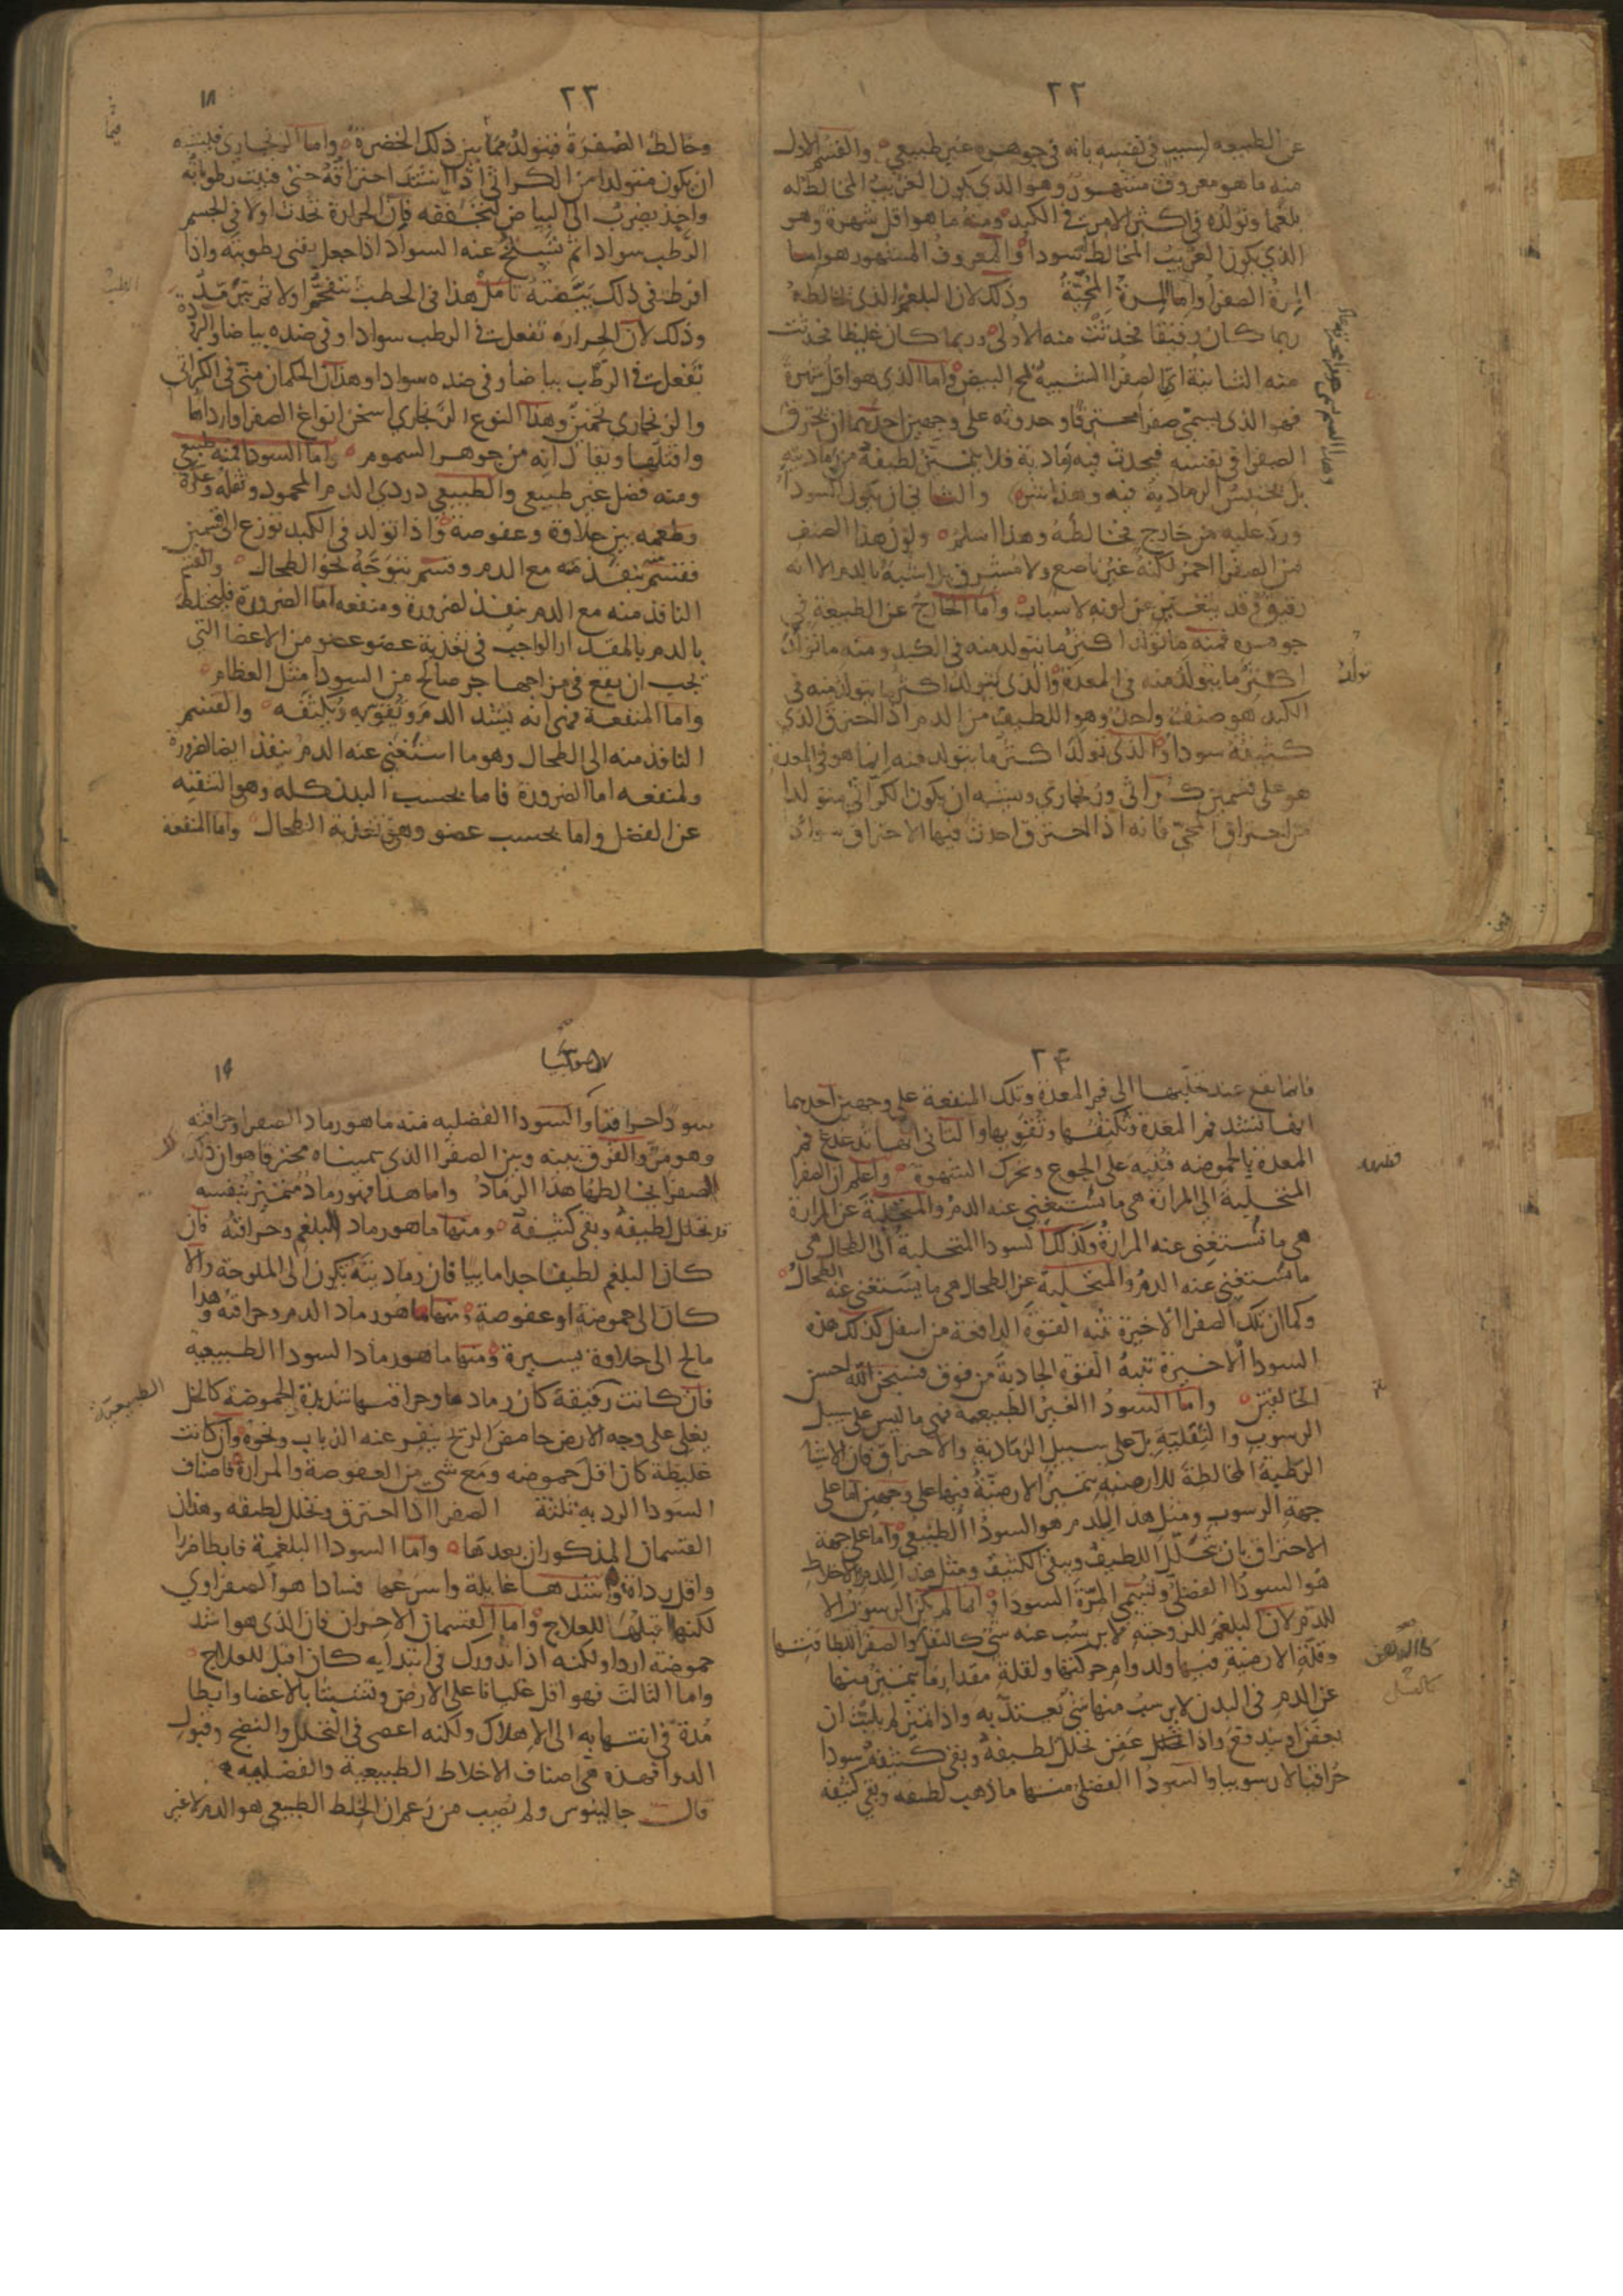 ٢٢
عن الطبيعه لسبب في نفسه بانه في جوهره غير طبيعي والقسم الاول
منه ما هو معروف مشهور وهو الذي يكون الغريب المخالط له
بلغما وتولده في اكثر الامر في الكبد ومنه ما هو اقل شهرة وهو
الذي يكون الغريب المخالط له سودا والمعروف المشهور هو اما
المرة الصفرا واما المرة المحية وذلك لان البلغم الذي يخالطه
ربما كان رقيقا فحدثت منه الاولى وربما كان غليظا فحدثت
منه الثانية اي الصفرا الشبيه بمح البيض واما الذي هو اقل شهرة
فهو الذي يسمي صفرا محترقا وحدوثه على وجهين احدهما ان يحترق
الصفرا في نفسه فيحدث فيه رمادية فلا يتميز لطيفه من رماديته
بل يحتبس الرمادية فيه وهذا شر والثاني ان يكون السودا
ورد عليه من خارج فخالطه وهذا اسلم ولون هذا الصنف
من الصفرا احمر لكنه غير ناصع ولا مشرق بل اشبه بالدم الا انه
رقيق وقد يتغير عن لونه لاسباب واما الخارج عن الطبيعة في
جوهره فمنه ما تولد اكثر ما يتولد منه في الكبد ومنه ما تولد
اكثر ما يتولد منه في المعدة والذي تولد اكثر ما يتولد منه في
الكبد هو صنف واحد وهو اللطيف من الدم اذا احترق الذي
كثيفه سودا والذي تولد اكثر ما يتولد منه انما هو في المعدة
هو على قسمين كراثي وزنجاري ويشبه ان يكون الكراثي متولدا
من احتراق المحي فانه اذا احترق احدث فيها الاحتراق سوادا
تولد
٢٣
١٨
وخالط الصفرة فيتولد مما بين ذلك الخضرة واما الزنجاري فيشبه
ان يكون متولدا من الكراثي اذا اشتد احتراقه حتى فنيت رطوباته
واخذ يضرب الى البياض لتجففه فان الحرارة تحدث اولا في الجسم
الرطب سوادا ثم تسلخ عنه السواد اذا جعل يفني رطوبته واذا
افرط في ذلك بيضته تامل هذا في الحطب يتفحم اولا ثم يترمد
وذلك لان الحرارة تفعل في الرطب سوادا وفي ضده بياضا والبرودة
تفعل في الرطب بياضا وفي ضده سوادا وهذان الحكمان مني في الكراثي
والزنجاري تخمين وهذا النوع الزنجاري اسخن انواع الصفرا واردأها
واقتلها ويقال انه من جوهر السموم واما السودا فمنه طبيعي
ومنه فضل غير طبيعي والطبيعي دردي الدم المحمود وثفله وعكره
وطعمه بين حلاوة وعفوصة واذا تولد في الكبد توزع الى قسمين
فقسم منه ينفذ مع الدم وقسم يتوجه نحو الطحال والقسم
النافذ منه مع الدم ينفذ لضرورة ومنفعه اما الضرورة فليختلط
بالدم بالمقدار الواجب في تغذية عضو عضو من الاعضا التي
يجب ان يقع في مزاجها جز صالح من السودا مثل العظام
واما المنفعة فهي انه يشد الدم ويقويه ويكثفه والقسم
النافذ منه الى الطحال وهو ما استغنى عنه الدم ينفذ ايضا لضرورة
ولمنفعه اما الضرورة فاما بحسب البدن كله وهو التنقيه
عن الفضل واما بحسب عضو وهي تغذية الطحال واما المنفعة
الطب
٢۴
فانما تقع عند تحلبها الى فم المعدة وتلك المنفعة على وجهين احدهما
انها تشد فم المعدة وتكثفها وتقويها والثاني انها تدغدغ فم
المعدة بالحموضه فتنبه على الجوع وتحرك الشهوة واعلم ان الصفرا
المتحلبة الى المرارة هي ما يستغني عنه الدم والمتحلبة عن المرارة
هي ما تستغني عنه المرارة وكذلك السودا المتحلبة الى الطحال هي
ما يستغني عنه الدم والمتحلبة عن الطحال هي ما يستغني عنه الطحال
وكما ان تلك الصفرا الاخيرة تنبه القوة الدافعة من اسفل كذلك هذه
السودا الاخيرة تنبه القوة الجاذبة من فوق فسبحن الله احسن
الخالقين واما السودا الغير الطبيعية فهي ما ليس على سبيل
الرسوب والثفلية بل على سبيل الرمادية والاحتراق فان الاشيا
الرطبة المخالطة للارضية يتميز الارضية فيها على وجهين اما على
جهة الرسوب ومثل هذا للدم هو السودا الطبيعي واما على جهة
الاحتراق بان يتحلل اللطيف ويبقى الكثيف ومثل هذا للدم والاخلاط
هو السودا الفضلي وتسمى المرة السودا وانما لم يكن الرسوب الا
للدم لان البلغم للزوجته لا يرسب عنه شي كالثفل والصفرا للطافتها
وقلة الارضية فيها ولدوام حركتها ولقلة مقدار ما يتميز منها
عن الدم في البدن لا يرسب منها شي يعتد به واذا تميز لم يلبث ان
يعفن او يندفع واذا عفن تحلل لطيفه وبقى كثيفه سودا
حراقيا لا رسوبيا والسودا الفضلي منها ما ذهب لطيفه وبقي كثيفه
١٩
سودا حراقيا والسودا الفضليه فمنه ما هو رماد الصفرا وحراقته
وهو مر والفرق بينه وبين الصفرا الذي سميناه محترقا هو ان ذلك
الصفرا يخالطها هذا الرماد واما هذا فهو رماد متميز بنفسه
قد تحلل لطيفه وبقي كثيفه ومنها ما هو رماد البلغم وحراقته فان
كان البلغم لطيفا جدا مائيا فان رماديته تكون الى الملوحة والا
كان الى حموضة او عفوصة ومنها ما هو رماد الدم وحراقته وهذا
مالح الى حلاوة يسيرة ومنها ما هو رماد السودا الطبيعية
فان كانت رقيقة كان رمادها وحراقتها شديدة الحموضة كالخل
يغلي على وجه الارض حامض الريح ينفر عنه الذباب ونحوه وان كانت
غليظة كان اقل حموضه ومع شي من العفوصة والمرارة فاصناف
السودا الرديه ثلثة الصفرا اذا احترق وتحلل لطيفه وهذان
القسمان المذكوران بعدها واما السودا البلغمية فابطا ضررا
واقل رداة واشدها غايلة واسرعها فسادا هو الصفراوي
لكنها اقبلها للعلاج واما القسمان الاخران فان الذي هو اشد
حموضة اردا ولكنه اذا تدورك في ابتدايه كان اقبل للعلاج
واما الثالث فهو اقل غليانا على الارض وتشبثا بالاعضا وابطا
مدة في انتهايه الى الاهلاك ولكنه اعصى في التحلل والنضج وقبول
الدوا فهذه هي اصناف الاخلاط الطبيعية والفضليه
قال جالينوس ولم يصب من زعم ان الخلط الطبيعي هو الدم لا غير
الطبيعية